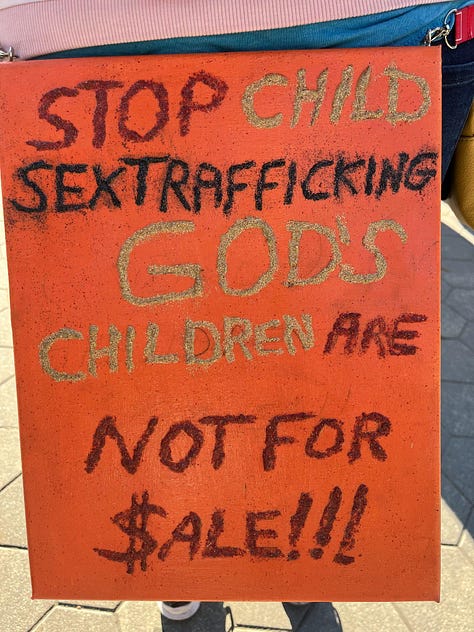 STOP CHILD
SEXTRAFFICKING
GOD'S
CHILDREN ARE
NOT FOR
$ALE!!!